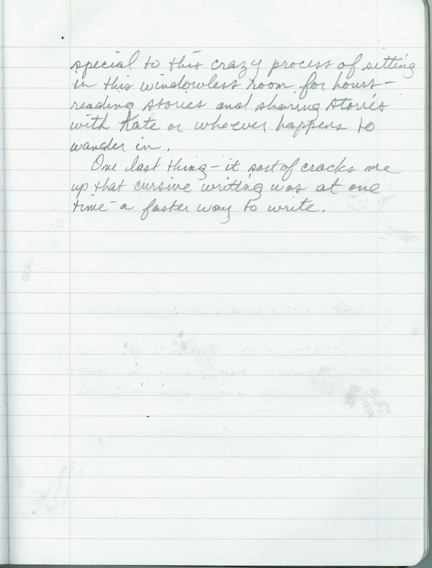 special to this crazy process of sitting
in this windowless room for hours -
reading stories and sharing stories
with Kate or whoever happens to
wander in.
One last thing - it sort of cracks me
up that cursive writing was at one
time - a faster way to write.